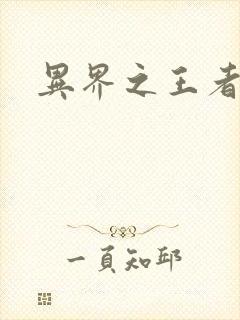 異界之王者
一頁知邱